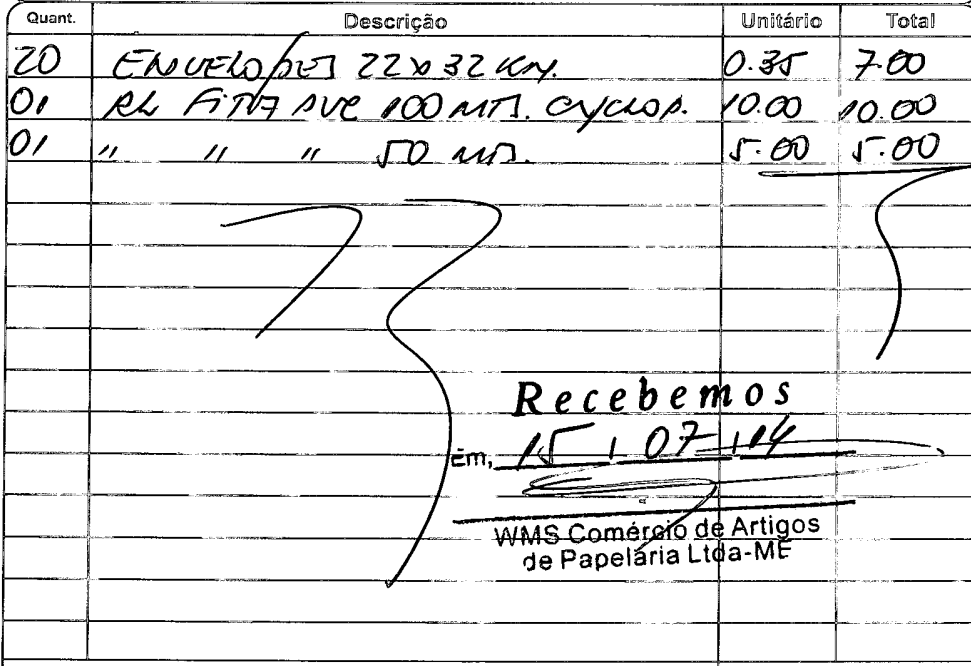 Quant. Descrição Unitário Total
20 ENVELOPES 22x32 KN. 0.35 7.00
01 RL FITA PVC 100 MTS. CYCLOP. 10.00 10.00
01 " " " 50 MTS. 5.00 5.00
Recebemos
Em, 15 / 07 / 14
WMS Comércio de Artigos
de Papelaria Ltda-ME